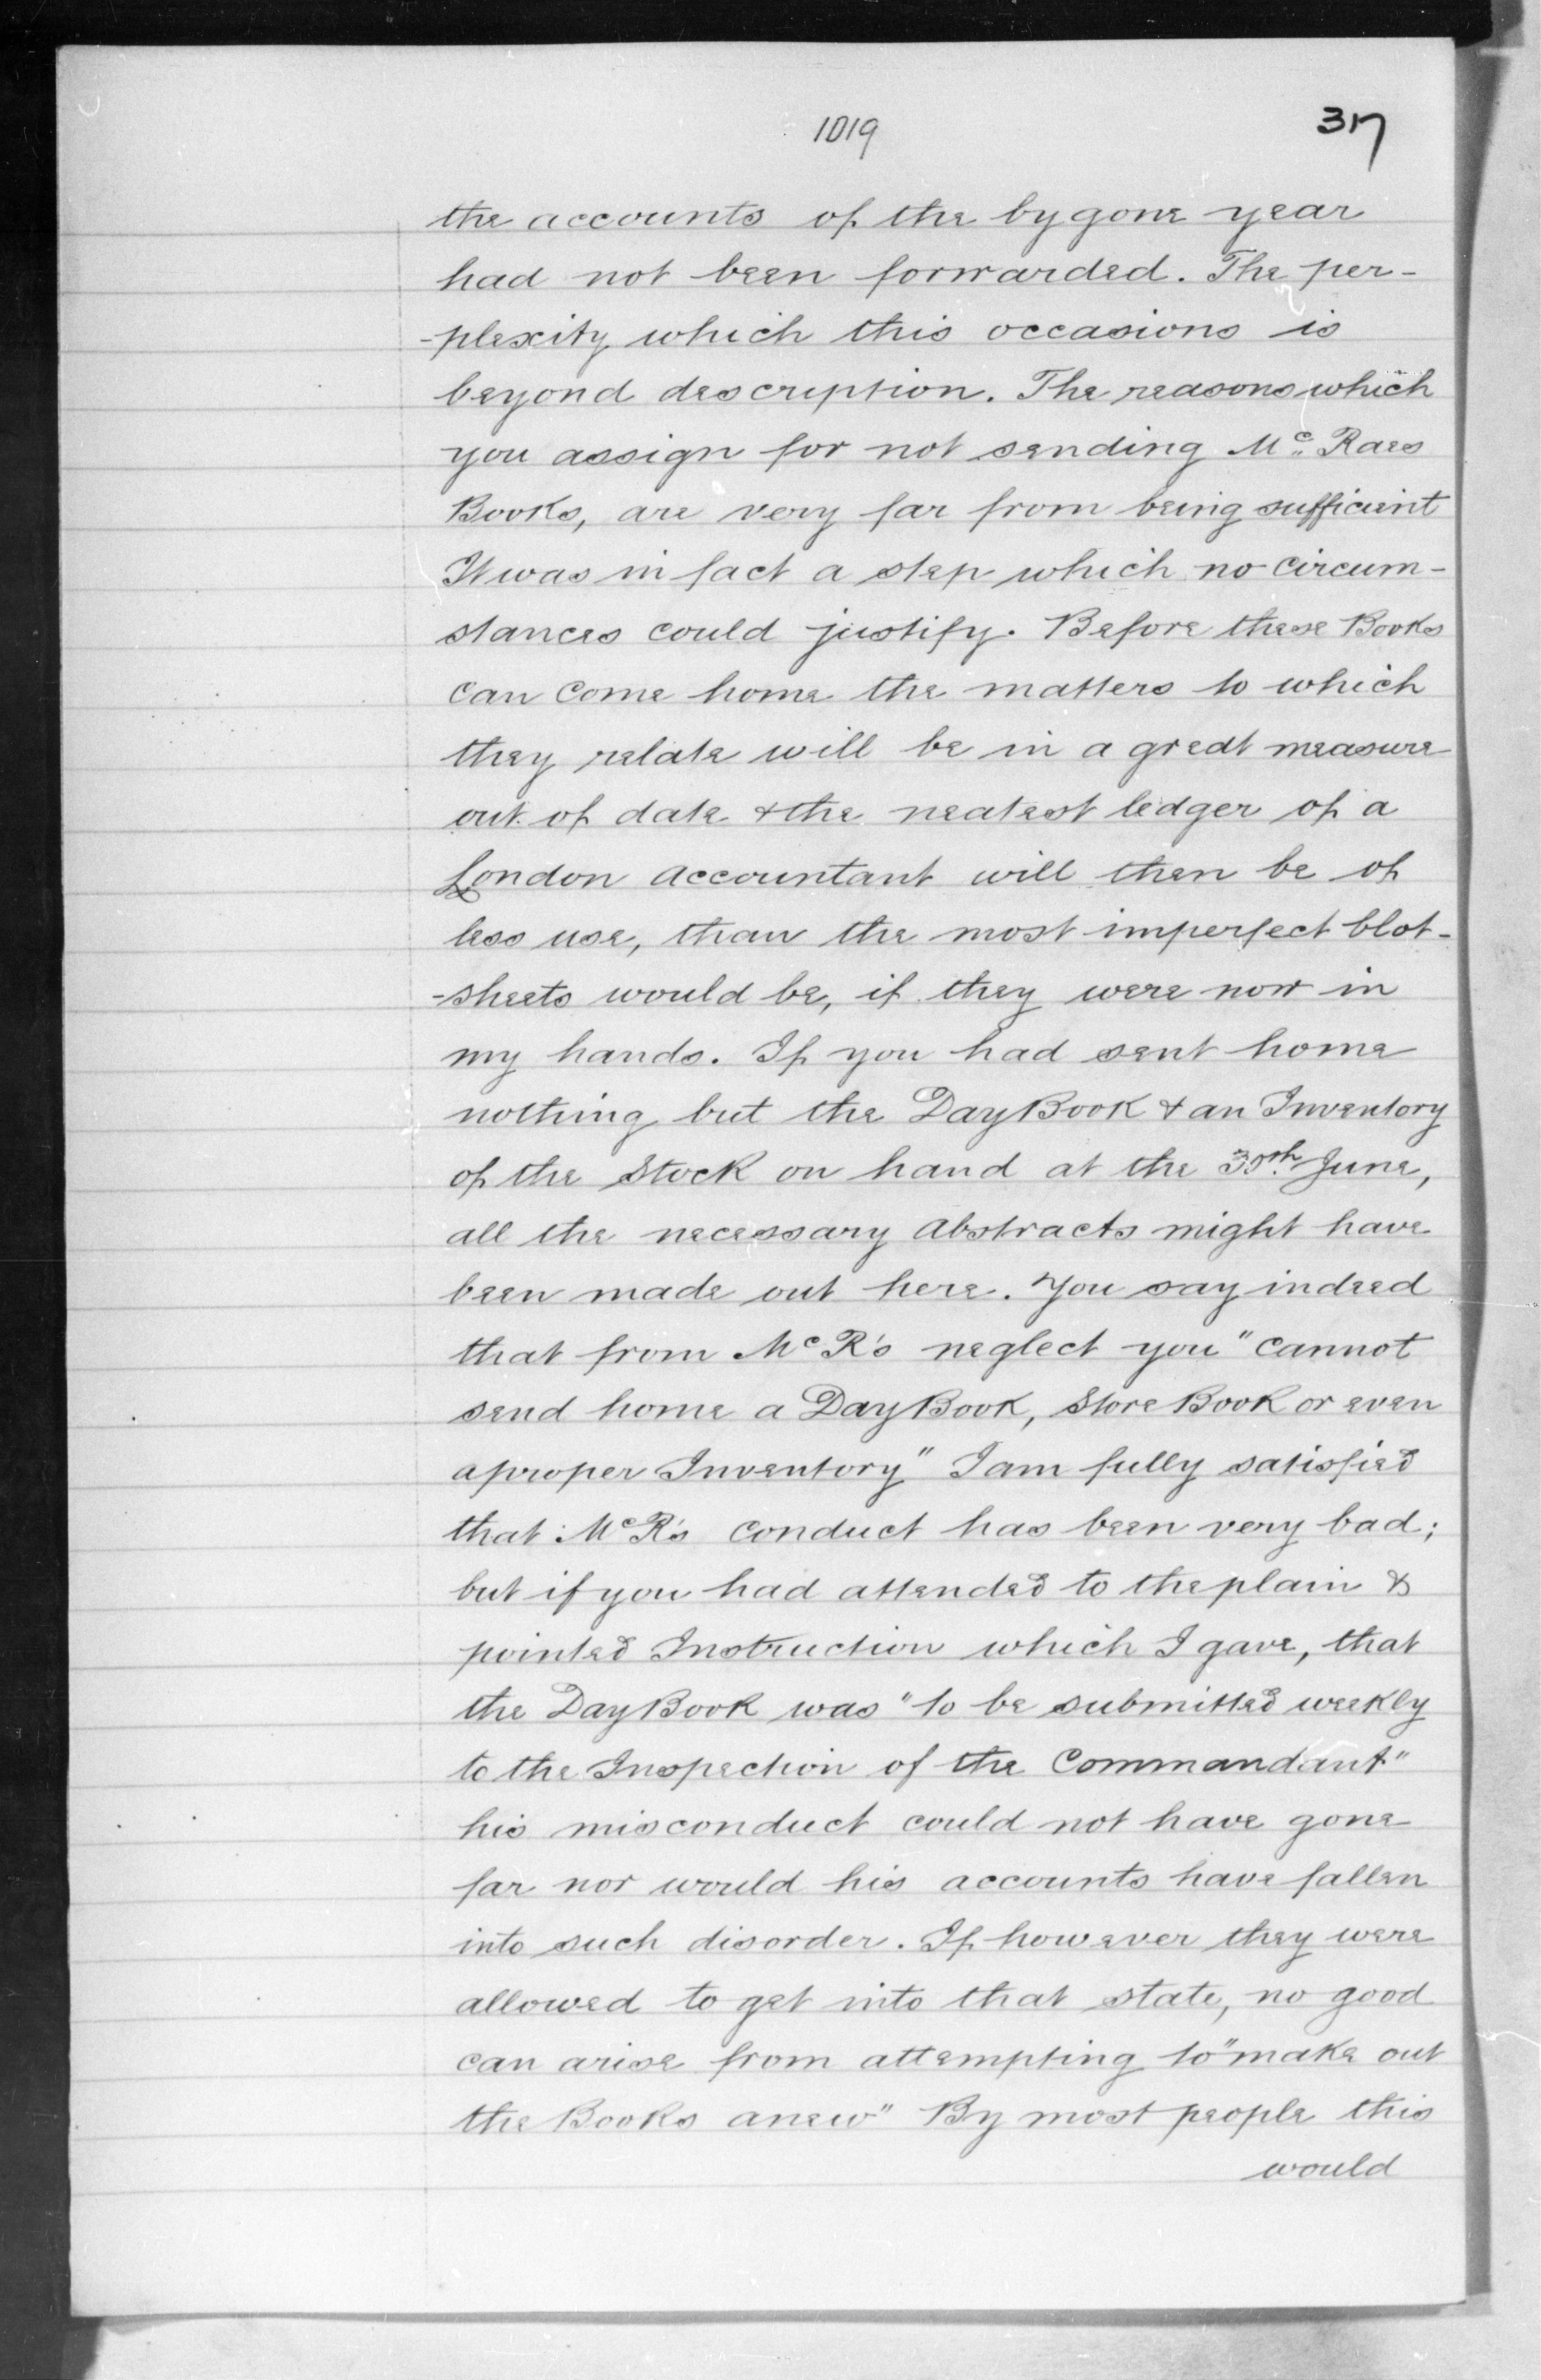 1019
317
the accounts of the by gone year
had not been forwarded. The per-
-plexity which this occasions is
beyond description. The reasons which
you assign for not sending Mc. Raes
Books, are very far from being sufficient
It was in fact a step which no circum-
stances could justify. Before these Books
can come home the matters to which
they relate will be in a great measure
out of date & the neatest ledger of a
London accountant will then be of
less use, than the most imperfect blot-
-sheets would be, if they were now in
my hands. If you had sent home
nothing but the Day Book & an Inventory
of the Stock on hand at the 30th June,
all the necessary abstracts might have
been made out here. You say indeed
that from Mc R's neglect you "cannot
send home a Day Book, Store Book or even
a proper Inventory" I am fully satisfied
that Mc R's conduct has been very bad;
but if you had attended to the plain &
pointed Instruction which I gave, that
the Day Book was "to be submitted weekly
to the Inspection of the Commandant"
his misconduct could not have gone
far nor would his accounts have fallen
into such disorder. If however they were
allowed to get into that state, no good
can arise from attempting to "make out
the Books anew" By most people this
would